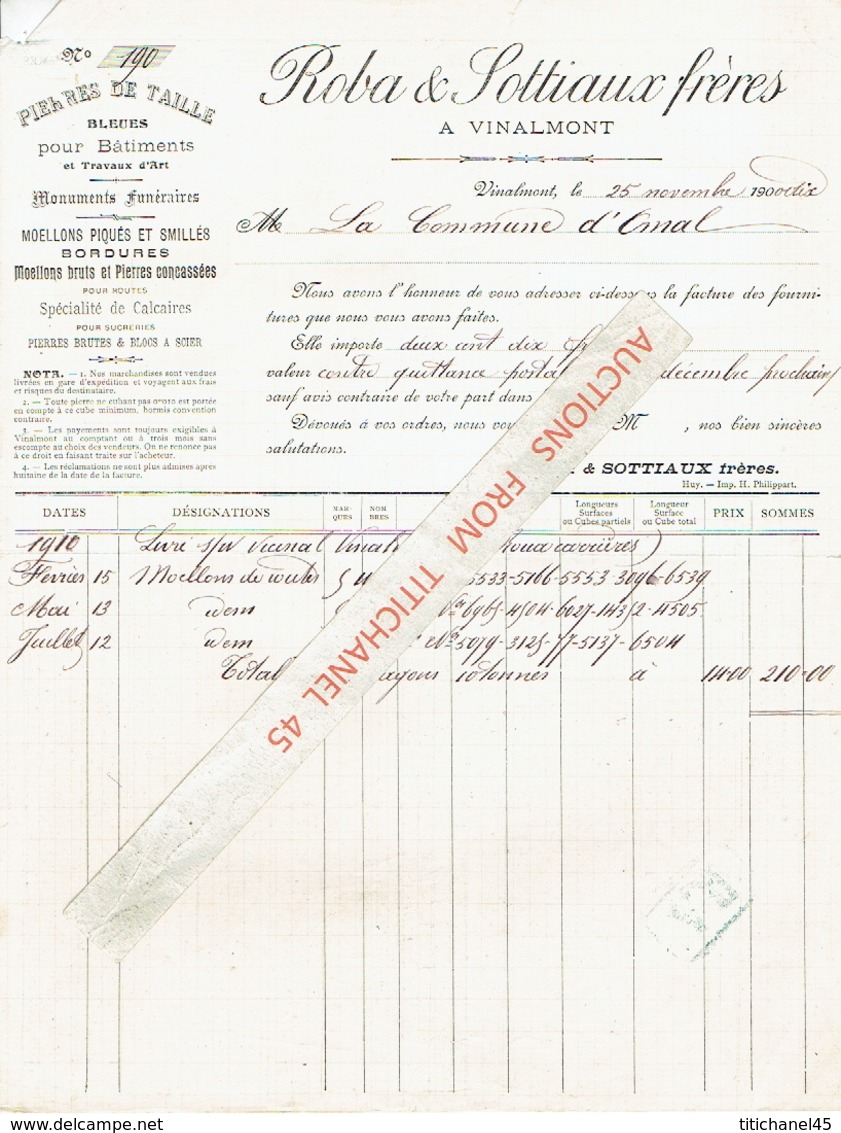 No 190
PIERRES DE TAILLE
BLEUES
pour Bâtiments
et Travaux d'Art
Monuments Funéraires
MOELLONS PIQUÉS ET SMILLÉS
BORDURES
Moellons bruts et Pierres concassées
POUR ROUTES
Spécialité de Calcaires
POUR SUCRERIES
PIERRES BRUTES & BLOCS A SCIER
NOTA. — 1. Nos marchandises sont vendues
livrées en gare d'expédition et voyagent aux frais
et risques du destinataire.
2. — Toute pierre ne cubant pas 0m050 est portée
en compte à ce cube minimum, hormis convention
contraire.
3. — Les payements sont toujours exigibles à
Vinalmont au comptant ou à trois mois sans
escompte au choix des vendeurs. On ne renonce pas
à ce droit en faisant traite sur l'acheteur.
4. — Les réclamations ne sont plus admises après
huitaine de la date de la facture.
Roba & Sottiaux frères
A VINALMONT
Vinalmont, le 25 novembre 1900 dix
M La Commune d'Omal
Nous avons l'honneur de vous adresser ci-dessous la facture des fourni-
tures que nous vous avons faites.
Elle importe deux cent dix fr
valeur contre quittance postal décembre prochain
sauf avis contraire de votre part dans
Dévoués à vos ordres, nous vou M , nos bien sincères
salutations.
& SOTTIAUX frères.
Huy. — Imp. H. Philippart.
DATES DÉSIGNATIONS MAR-QUES NOM BRES Longueurs Surfaces ou Cubes partiels Longueur Surface ou Cube total PRIX SOMMES
1910 Livré s/w Vicinal Vinal carrières)
Février 15 Moellons de 5533-5166-5553-3096-6539
Mai 13 idem Nos 6965-4504-6027-14352-4505
Juillet 12 idem Nos 5079-3125-77-5137-6504
Total 10 tonnes à 14.00 210.00
AUCTIONS FROM TITICHANEL 45
titichanel45